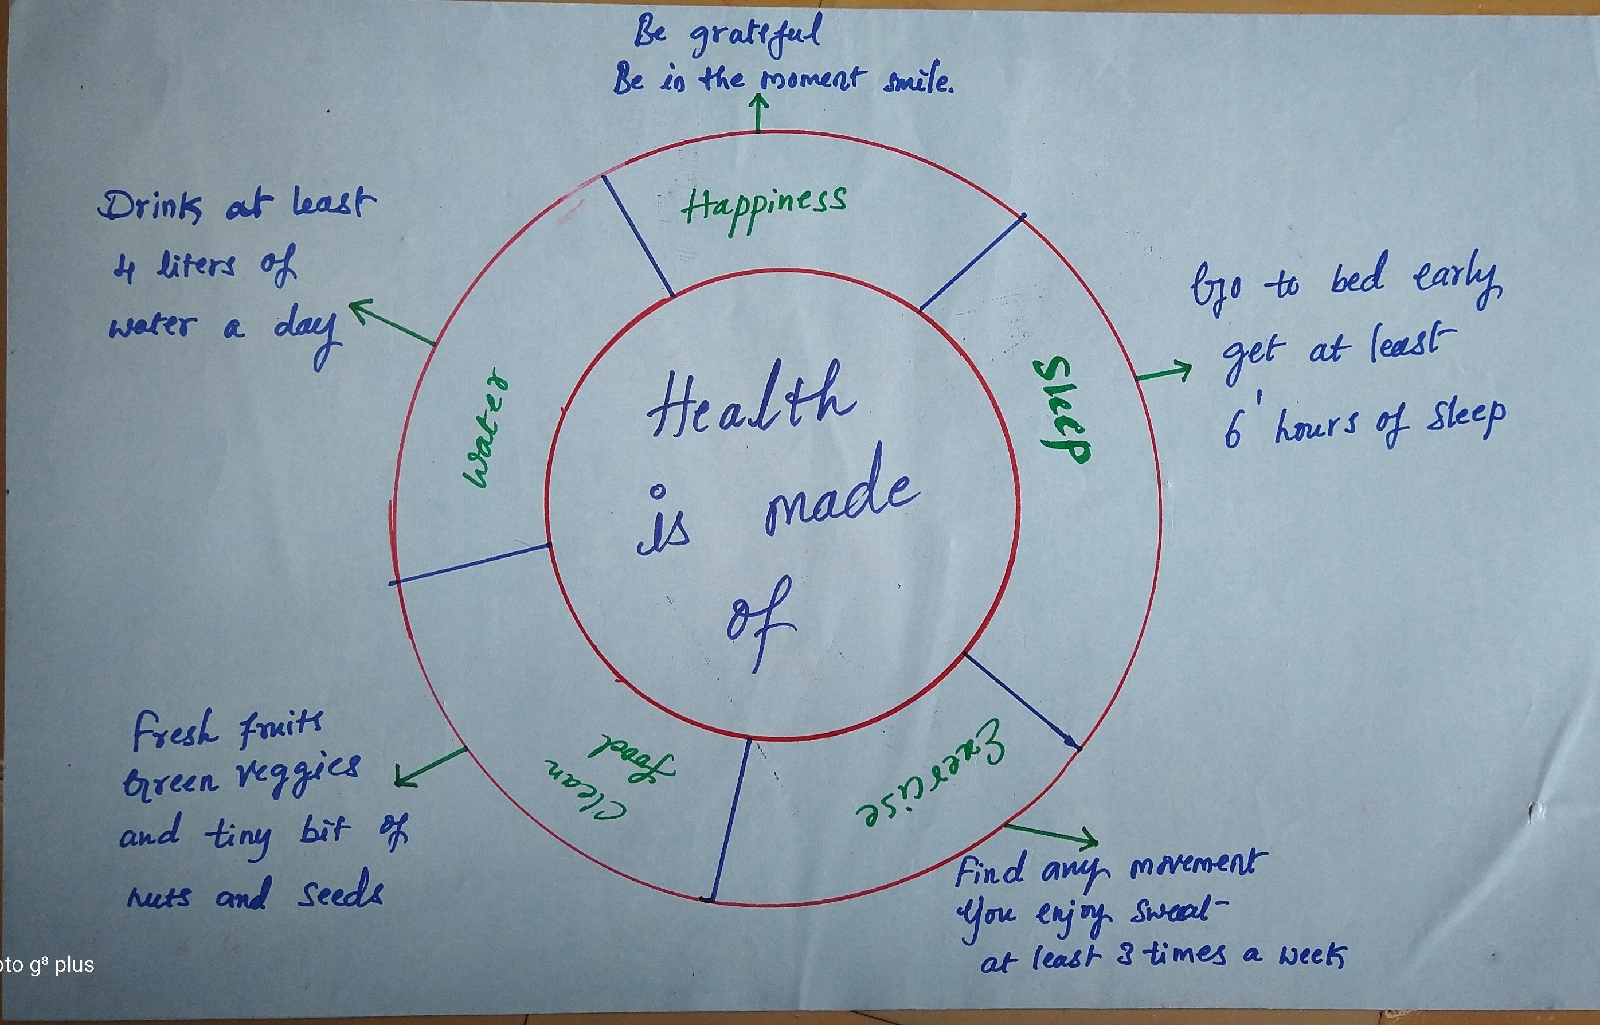 Be grateful
Be in the moment smile.
Happiness
Drink at least
4 liters of
water a day
Water
Go to bed early
get at least
6 hours of sleep
Sleep
Health
is made
of
Exercise
Find any movement
You enjoy sweat
at least 3 times a week
Clean
food
Fresh fruits
Green veggies
and tiny bit of
nuts and seeds
oto g⁸ plus